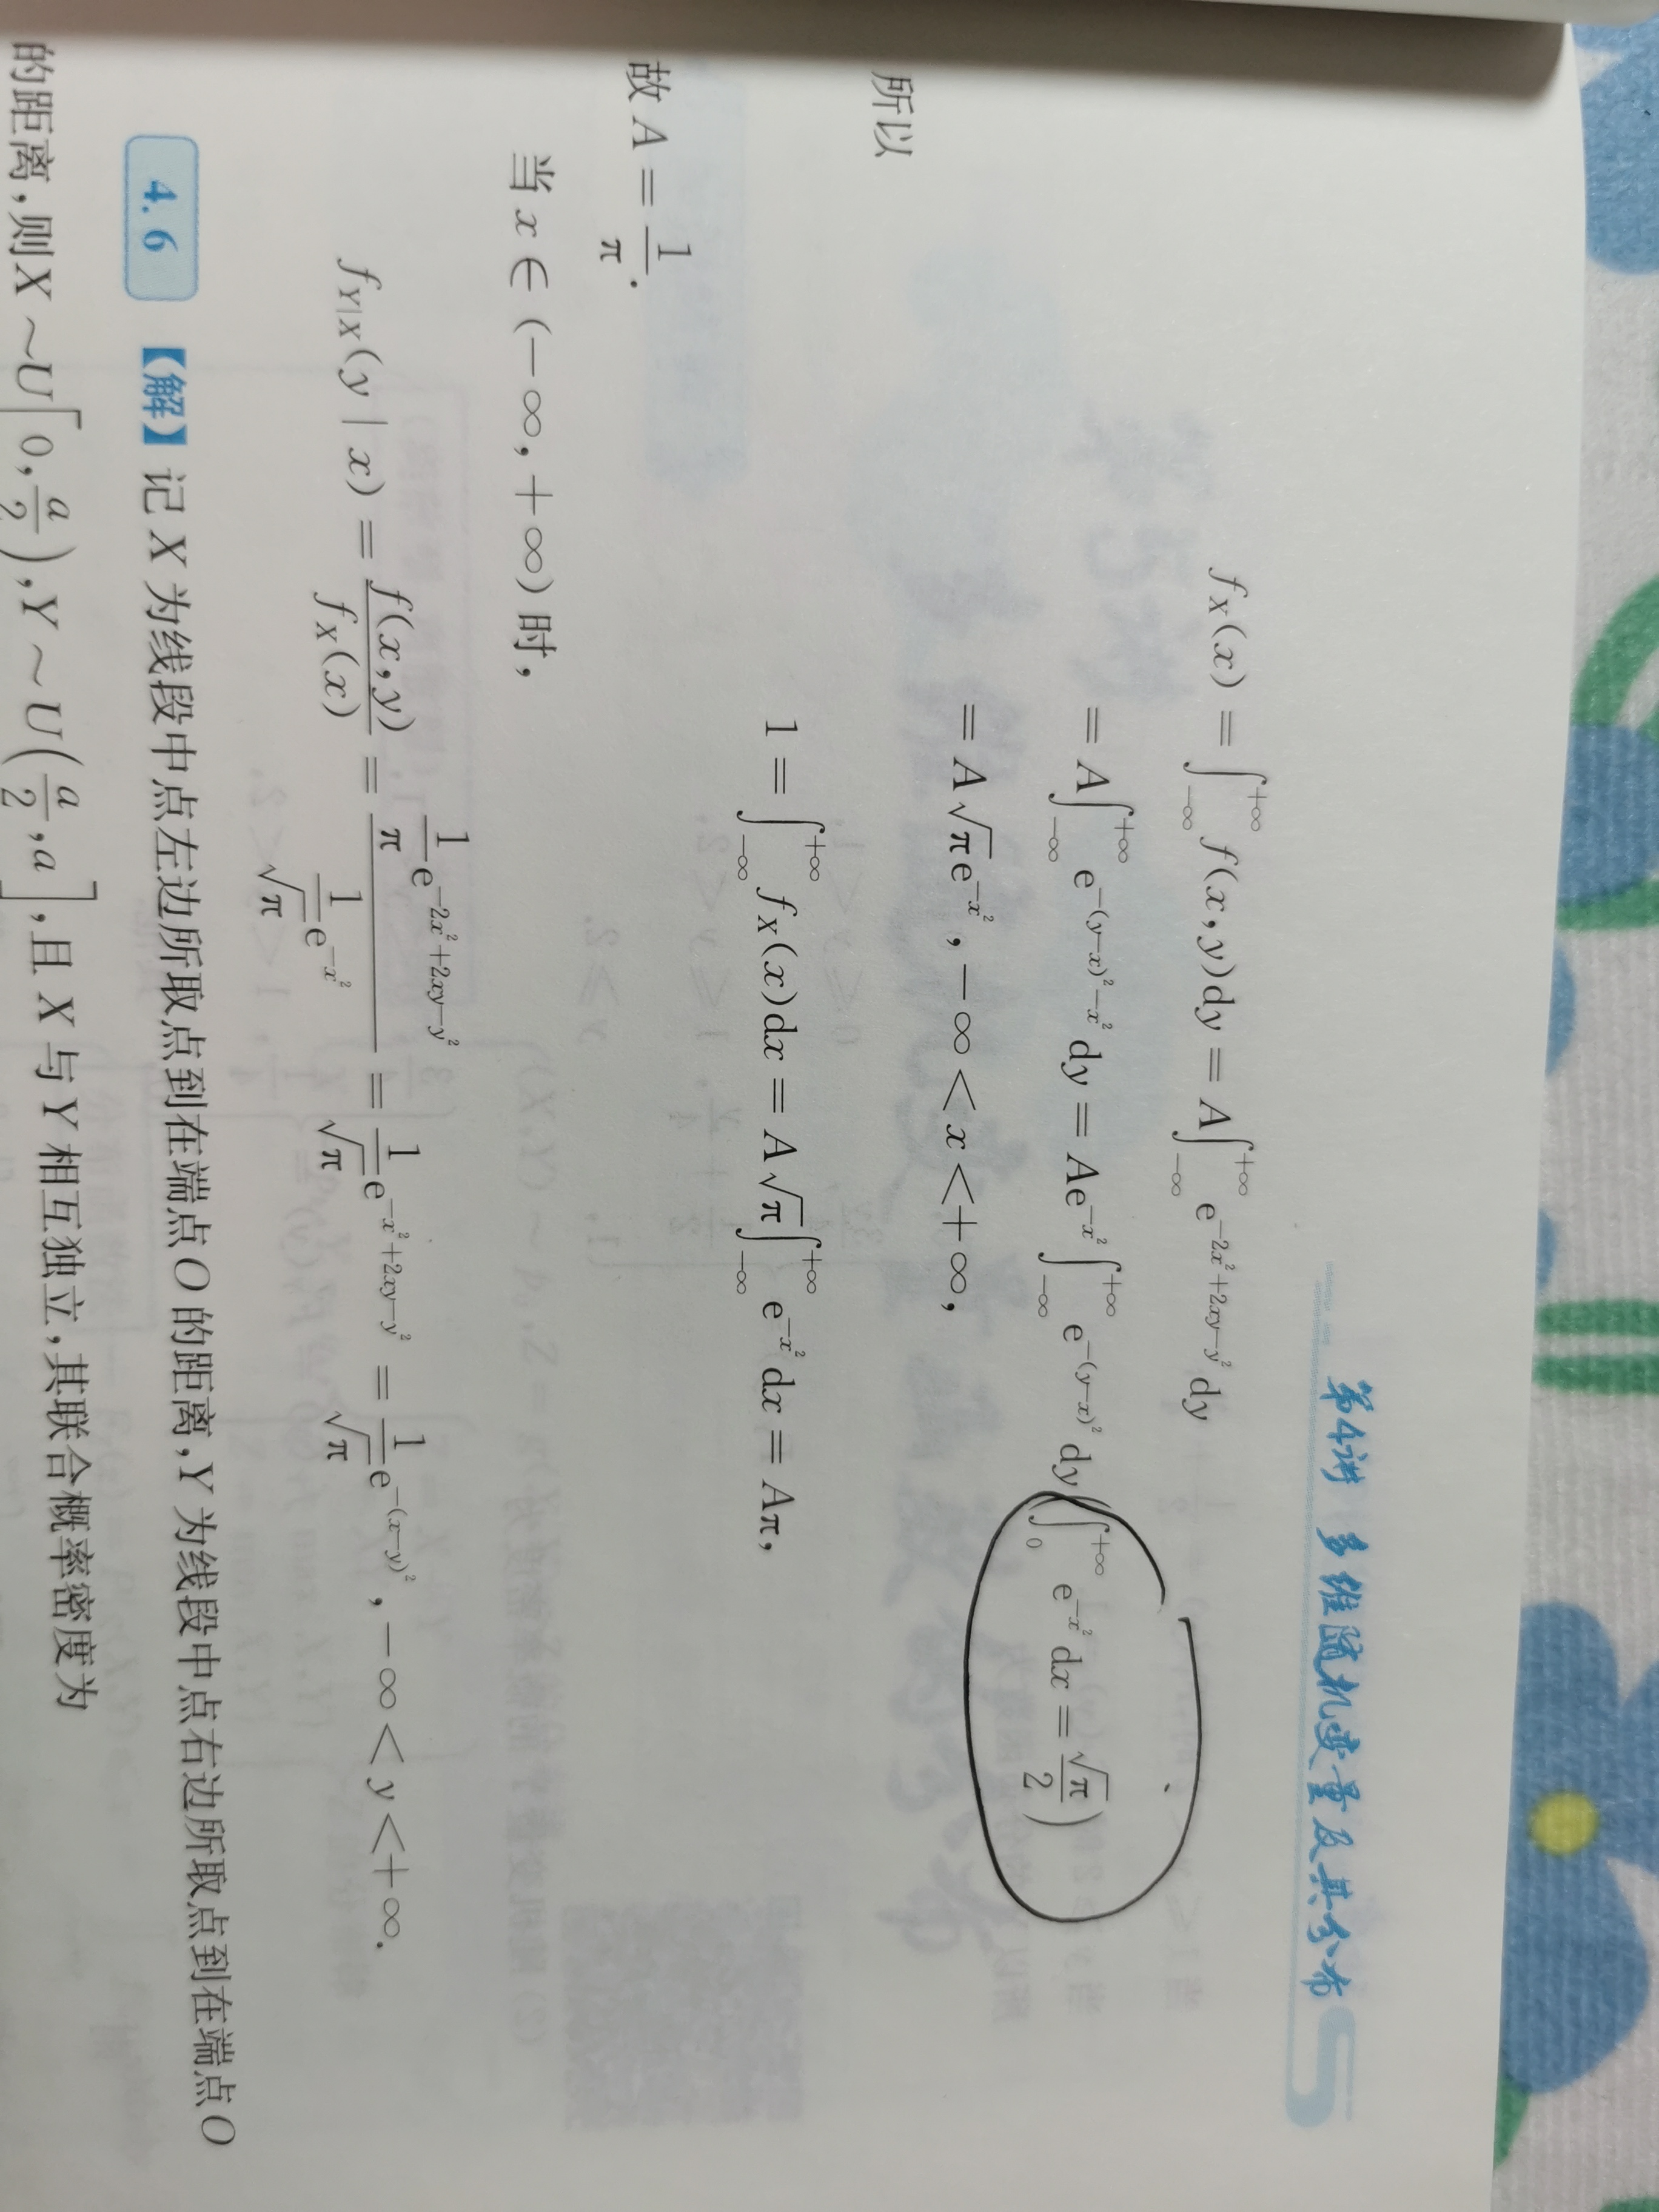 第4讲 多维随机变量及其分布
f_X(x) = ∫_{-∞}^{+∞} f(x,y)dy = A∫_{-∞}^{+∞} e^{-2x²+2xy-y²}dy
= A∫_{-∞}^{+∞} e^{-(y-x)²-x²}dy = Ae^{-x²}∫_{-∞}^{+∞} e^{-(y-x)²}dy(∫_0^{+∞} e^{-x²}dx = √π/2)
= A√π e^{-x²}, -∞ < x < +∞,
所以
1 = ∫_{-∞}^{+∞} f_X(x)dx = A√π∫_{-∞}^{+∞} e^{-x²}dx = Aπ,
故 A = 1/π.
当 x ∈ (-∞,+∞)时,
f_{Y|X}(y | x) = f(x,y)/f_X(x) = (1/π e^{-2x²+2xy-y²})/(1/√π e^{-x²}) = 1/√π e^{-x²+2xy-y²} = 1/√π e^{-(x-y)²}, -∞ < y < +∞.
4.6 【解】记 X 为线段中点左边所取点到在端点 O 的距离,Y 为线段中点右边所取点到在端点 O
的距离,则 X ~ U[0,a/2),Y ~ U(a/2,a],且 X 与 Y 相互独立,其联合概率密度为